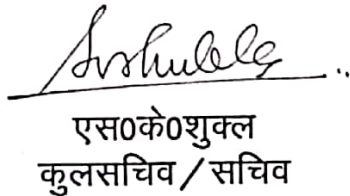 एस0के0शुक्ल
कुलसचिव / सचिव